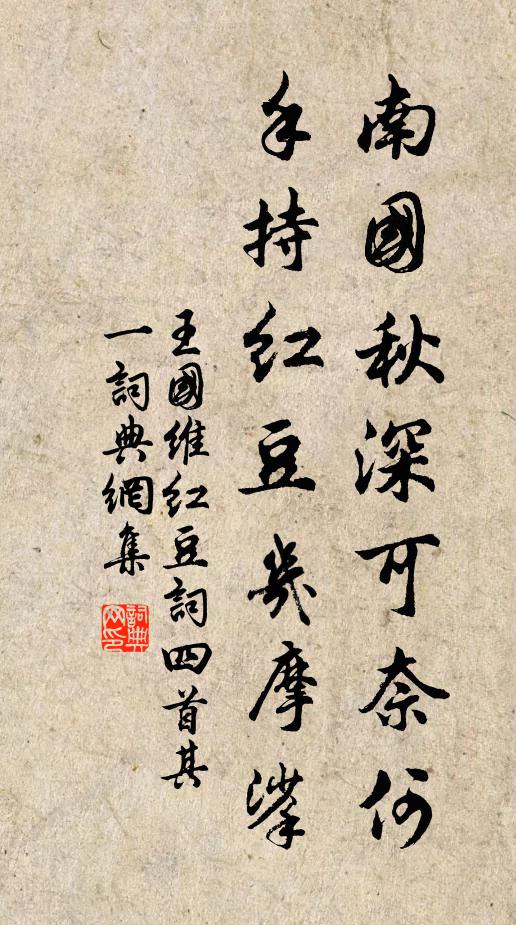 南國秋深可奈何
手持紅豆幾摩挲
王國維紅豆詞四首其
一詞典網集
詞典
网印